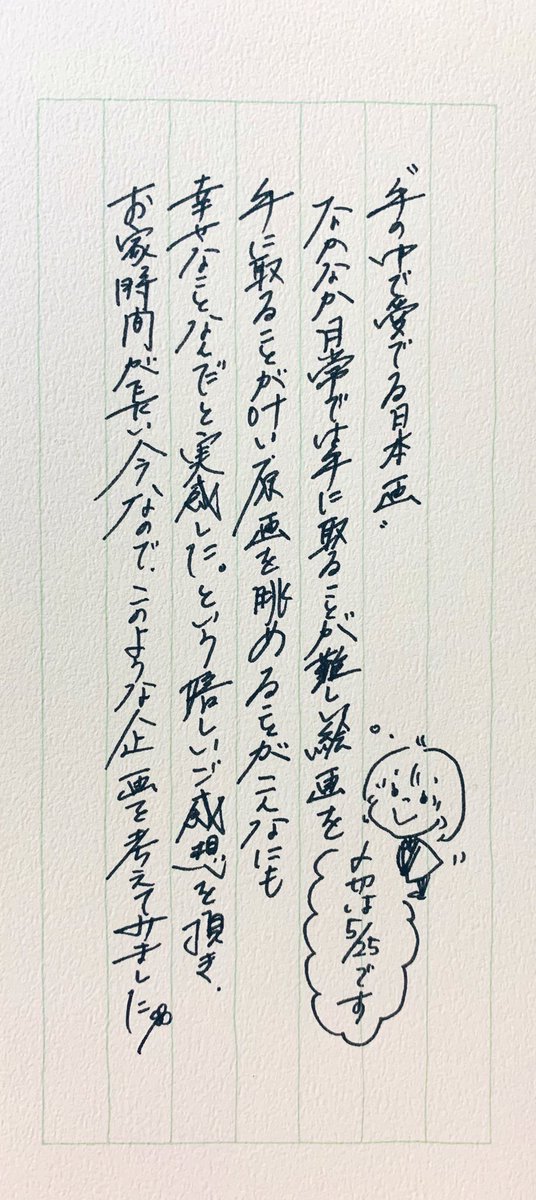 "手の中で愛でる日本画"
なかなか日常では手に取ることが難しい絵画を
手に取ることが叶い、原画を眺めることがこんなにも
幸せなことなんだと実感した。という嬉しいご感想を頂き、
お家時間が長い今なので、このような企画を考えてみました
〆切は
5/25です